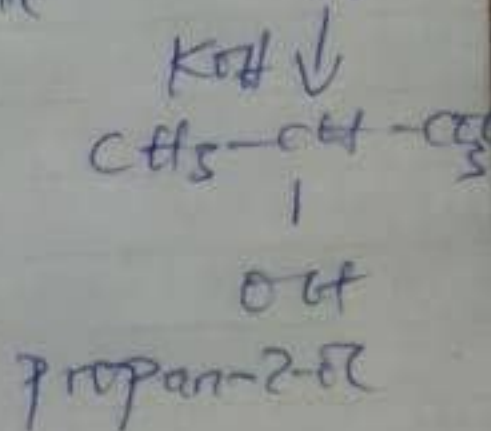 KOH ↓
CH3-CH-CH3
|
OH
propan-2-ol